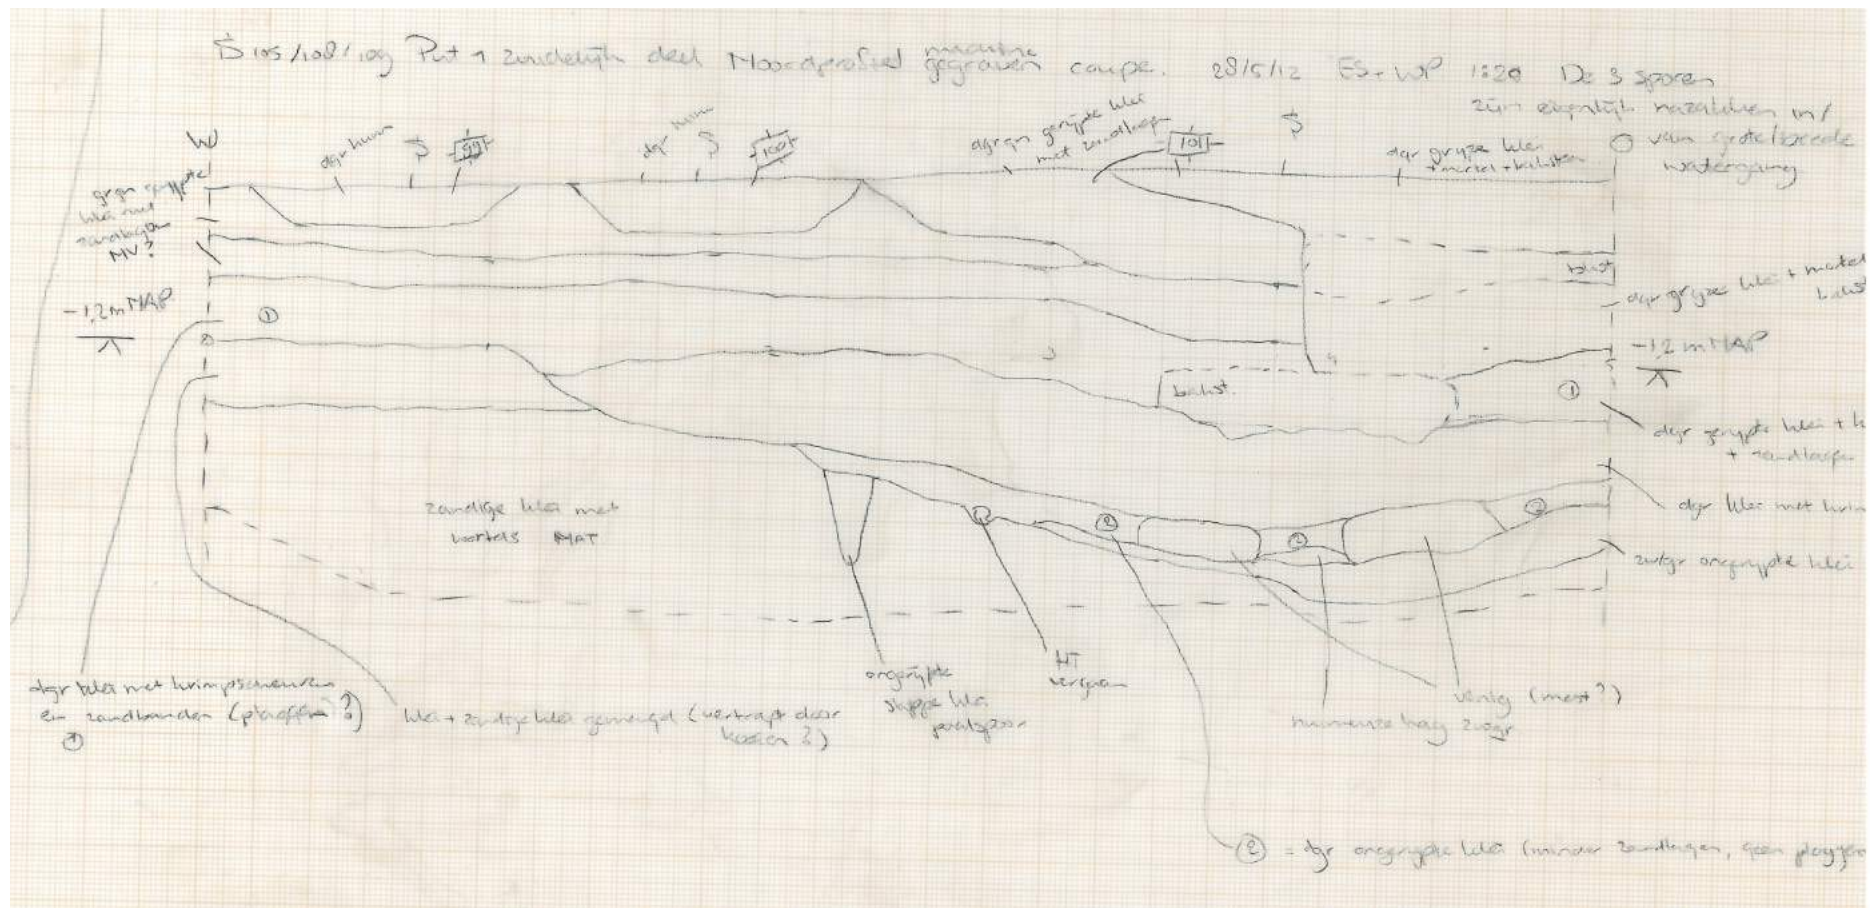 S 105/108/109 Put 1 zuidelijk deel Noordprofiel machine gegraven coupe. 28/5/12 ES + WP 1:20 De 3 sporen
zijn eigenlijk nazakken in/
van grote/brede
watergang
W
O
dgr hum
S
99
dgr hum
S
100
dgrgn gerijpte klei
met zandlagen
101
S
dgr grijze klei
+ mortel + bakst
grgn gerijpte
klei met
zandlagen
MV?
-1,2m NAP
1
bakst
dgr grijze klei + mortel
bakst
-1,2 m NAP
bakst.
1
dgr gerijpte klei + h
+ zandlagen
dgr klei met krim
zw/gr ongerijpte klei
zandige klei met
wortels NAT
2
2
2
dgr klei met krimpscheuren
en zandbanden (plaggen?)
1
klei + zandige klei gemengd (vertrapt door
koeien?)
ongerijpte
slappe klei
paalspoor
HT
vergaan
venig (mest?)
humeuze laag zwgr
2 = dgr ongerijpte klei (minder zandlagen, geen plaggen